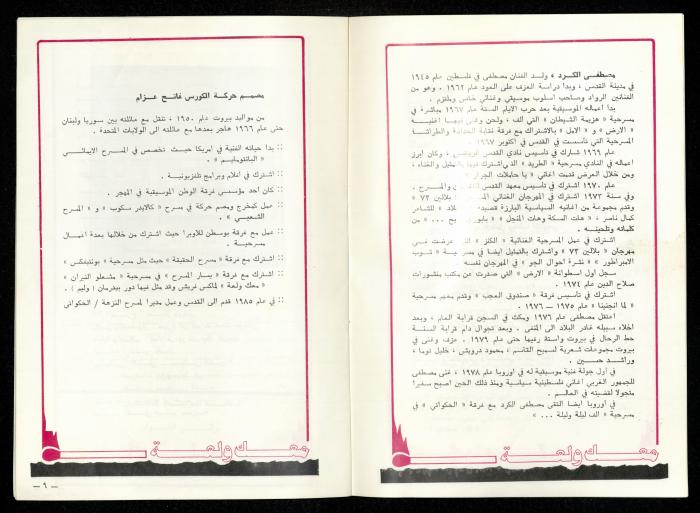 مصطفى الكرد ، ولد الفنان مصطفى في فلسطين عام ١٩٤٥
في مدينة القدس ، وبدا دراسة العزف على العود عام ١٩٦٢ . وهو من
الفنانين الرواد وصاحب اسلوب موسيقي وغنائي خاص وملتزم .
بدا اعماله الموسيقية بعد حرب الايام الستة عام ١٩٦٧ مباشرة في
مسرحية « هزيمة الشيطان » التي الف ، ولحن وغنى فيها اغنية
« الارض » و « الامل » بالاشتراك مع فرقة نقابة
المسرحية التي تأسست في القدس في اكتوبر ١٩٦٧ .
عام ١٩٦٩ شارك في تأسيس نادي القدس ، وكان ابرز
اعماله في النادي مسرحية « الطريد » الذي اشترك فيها بالتمثيل والغناء ،
ومن خلال العرض قدمت اغاني « يا حاملات الجرار » .
عام ١٩٧٠ اشترك في تأسيس معهد القدس والمسرح .
وفي سنة ١٩٧٣ اشترك في المهرجان الغنائي « بلالين ٧٣ »
وقدم مجموعة من اغانيه السياسية البارزة للشاعر
كمال ناصر ، « هات السكة وهات المنجل » « من
كلماته وتلحينه .
اشترك في عمل المسرحية الغنائية « الكنز » التي عرضت في
مهرجان « بلالين ٧٣ » واشترك بالتمثيل ايضا في مسرحية « ثوب
الامبراطور » « نشرة احوال الجو » في المهرجان نفسه
سجل اول اسطوانة « الارض » التي صدرت عن مكتب منشورات
صلاح الدين عام ١٩٧٤ .
اشترك في تأسيس فرقة « صندوق العجب » وقدم معهم مسرحية
« لما انجنينا » عام ١٩٧٥ — ١٩٧٦ .
اعتقل مصطفى عام ١٩٧٦ ومكث في السجن قرابة العام ، وبعد
اخلاء سبيله غادر البلاد الى المنفى . وبعد تجوال دام قرابة السنة
حط الرحال في بيروت حتى عام ١٩٧٩ . عزف وغنى في
بيروت مجموعات شعرية لسميح القاسم ، محمود درويش ، خليل توما ،
وراشد حسين .
في اول جولة فنية موسيقية له في اوروبا عام ١٩٧٨ ، غنى مصطفى
للجمهور الغربي اغاني فلسطينية سياسية ومنذ ذلك الحين اصبح سفيرا
متجولا لقضيته في العالم .
في اوروبا ايضا التقى مصطفى الكرد مع فرقة « الحكواتي » في
مسرحية « الف ليلة وليلة ... »
محك ولعة
مصمم حركة الكورس فاتح عزام
من مواليد بيروت عام ١٩٥٠ ، تنقل مع عائلته بين سوريا ولبنان
حتى عام ١٩٦٦ هاجر بعدها مع عائلته الى الولايات المتحدة .
:: بدا حياته الفنية في امريكا حيث تخصص في المسرح الايمائي
« البانتوميم » .
:: اشترك في افلام وبرامج تلفزيونية .
:: كان احد مؤسسي فرقة الوطن الموسيقية في المهجر .
:: عمل كمخرج ومصمم حركة في مسرح « كالايدر سكوب » و « المسرح
الشعبي » .
:: عمل مع فرقة بوسطن للاوبرا حيث اشترك من خلالها بعدة اعمال
مسرحية .
:: اشترك مع فرقة « مسرح الحقيقة » حيث مثل مسرحية « بونتيفكس »
:: اشترك مع فرقة « يسار المسرح » في مسرحية « مشعلو النيران »
« معك ولعة » لماكس فريش وقد مثل فيها دور بيدرمان ( وليم ) .
:: في عام ١٩٨٥ قدم الى القدس وعمل مديرا لمسرح النزهة / الحكواتي
معك ولعة
— ٦ —